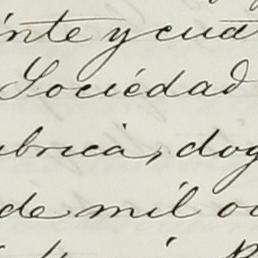 inte y cua
Sociedad
ubrica, dog
de mil o